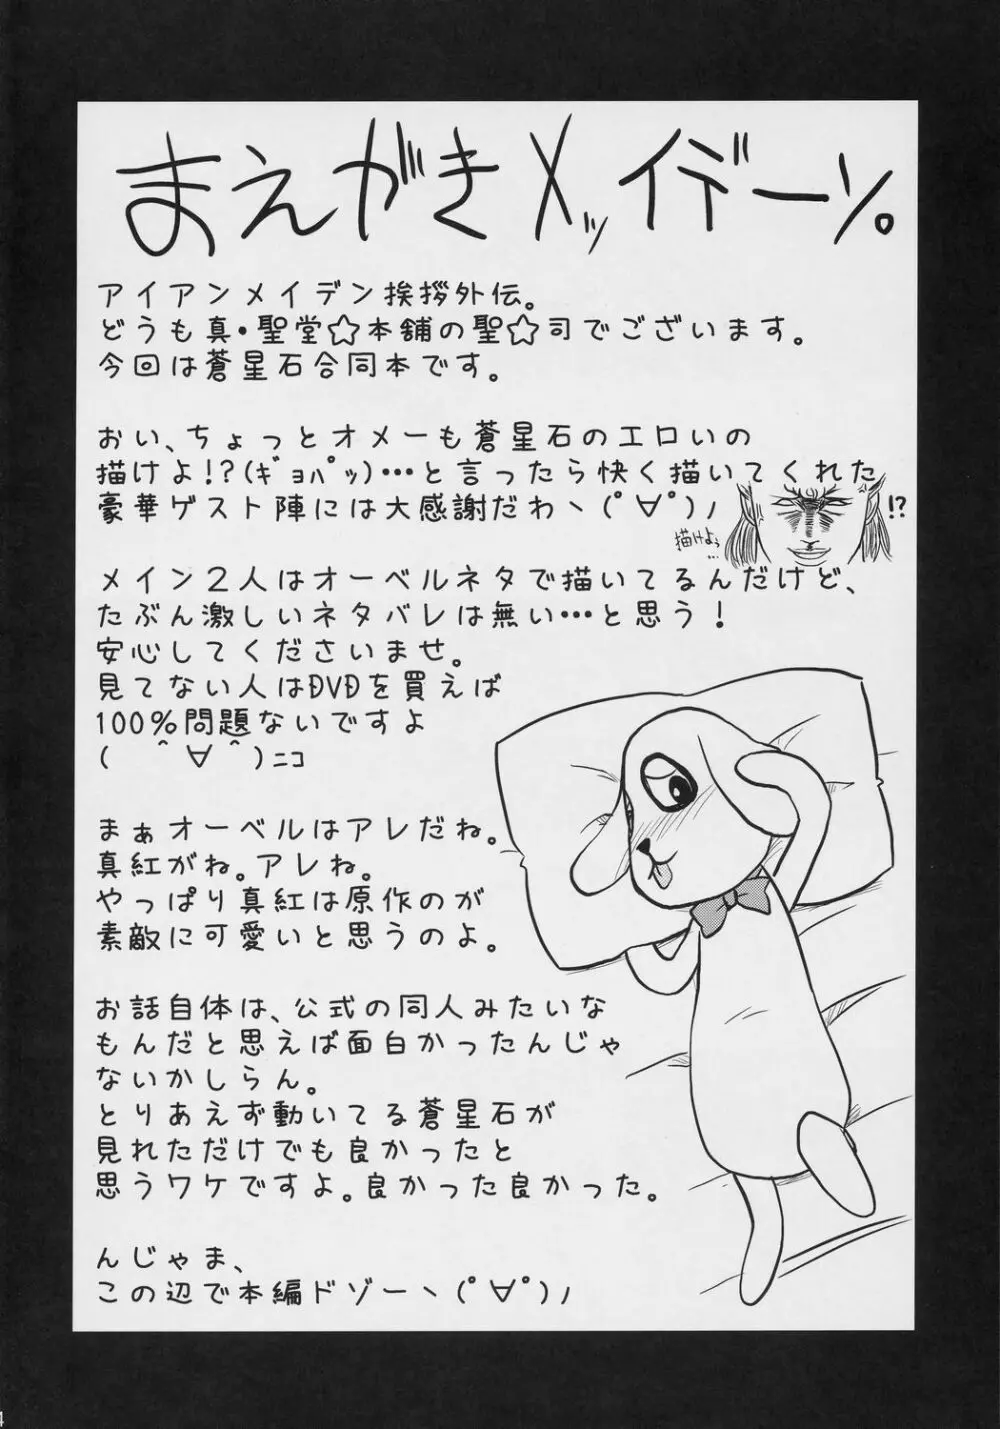 まえがきメッイデーン。
アイアンメイデン挨拶外伝。
どうも真・聖堂☆本舗の聖☆司でございます。
今回は蒼星石合同本です。
おい、ちょっとオメーも蒼星石のエロいの
描けよ!?(ｷﾞｮﾊﾟｯ)…と言ったら快く描いてくれた
豪華ゲスト陣には大感謝だわヽ(ﾟ∀ﾟ)ﾉ
!?
描けよぅ
…
メイン２人はオーベルネタで描いてるんだけど、
たぶん激しいネタバレは無い…と思う！
安心してくださいませ。
見てない人はDVDを買えば
100%問題ないですよ
( ＾∀＾)ﾆｺ
まぁオーベルはアレだね。
真紅がね。アレね。
やっぱり真紅は原作のが
素敵に可愛いと思うのよ。
お話自体は、公式の同人みたいな
もんだと思えば面白かったんじゃ
ないかしらん。
とりあえず動いてる蒼星石が
見れただけでも良かったと
思うワケですよ。良かった良かった。
んじゃま、
この辺で本編ドゾーヽ(ﾟ∀ﾟ)ﾉ
4